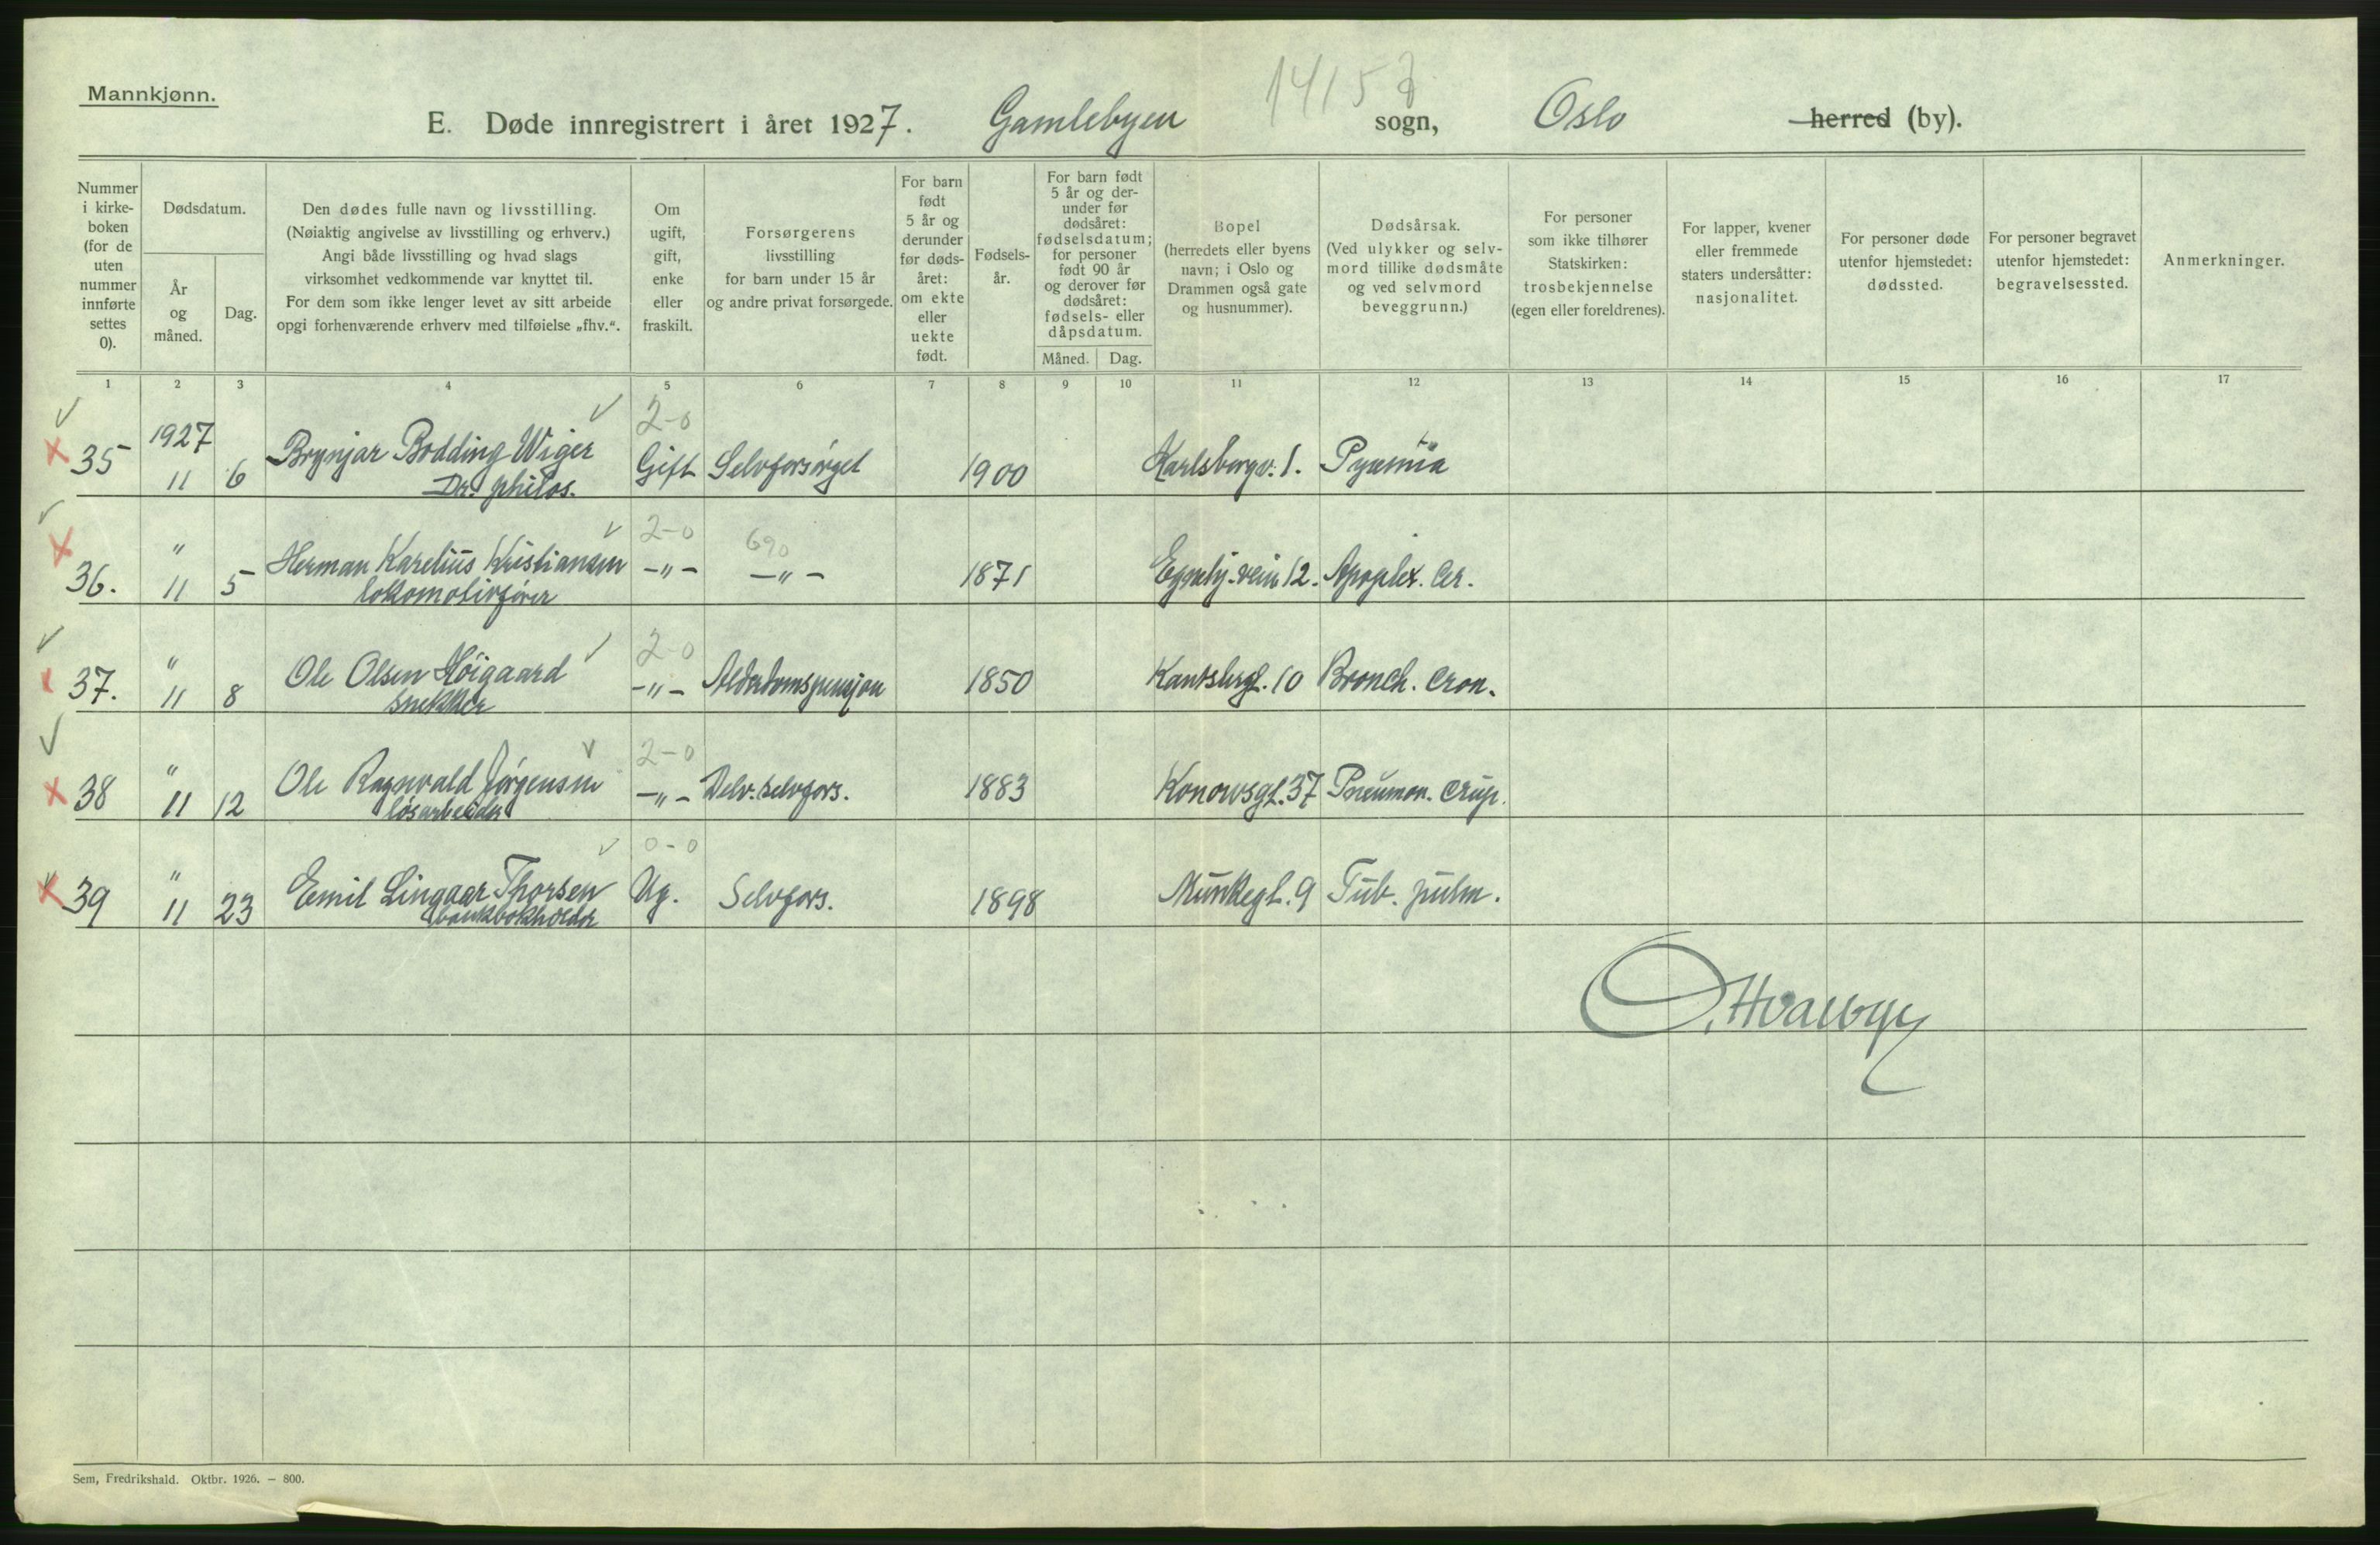 Mannkjønn.
14157
E. Døde innregistrert i året 1927. Gamlebyen sogn, Oslo herred (by).
Nummer i kirkeboken (for de uten nummer innførte settes 0).
Dødsdatum.
År og måned.
Dag.
Den dødes fulle navn og livsstilling.
(Nøiaktig angivelse av livsstilling og erhverv.)
Angi både livsstilling og hvad slags
virksomhet vedkommende var knyttet til.
For dem som ikke lenger levet av sitt arbeide
opgi forhenværende erhverv med tilføielse „fhv.“.
Om ugift, gift, enke eller fraskilt.
Forsørgerens
livsstilling
for barn under 15 år
og andre privat forsørgede.
For barn født 5 år og derunder før dødsåret: om ekte eller uekte født.
Fødselsår.
For barn født 5 år og derunder før dødsåret: fødselsdatum; for personer født 90 år og derover før dødsåret: fødsels- eller dåpsdatum.
Måned. Dag.
Bopel
(herredets eller byens
navn; i Oslo og
Drammen også gate
og husnummer).
Dødsårsak.
(Ved ulykker og selvmord tillike dødsmåte
og ved selvmord
beveggrunn.)
For personer
som ikke tilhører
Statskirken:
trosbekjennelse
(egen eller foreldrenes).
For lapper, kvener
eller fremmede
staters undersåtter:
nasjonalitet.
For personer døde
utenfor hjemstedet:
dødssted.
For personer begravet
utenfor hjemstedet:
begravelsessted.
Anmerkninger.
1 2 3 4 5 6 7 8 9 10 11 12 13 14 15 16 17
2-0
35 1927 11 6 Brynjar Bødding Wiger Gift Selvforsörget 1900 Karlsborgv. 1. Pyæmia
Dr. philos.
2-0 690
36. " 11 5 Herman Karelius Kristiansen -"- -"- 1871 12. Apoplex. Cer.
lokomotivfører
2-0
37. " 11 8 Ole Olsen Höigaard -"- Alderdomspensjon 1850 10 Bronch. Cron.
snekker
2-0
38 " 11 12 Ole Ragnvald Jørgensen -"- Delv. selvfors. 1883 Konowsgt. 37 Pneumon. Crup.
løsarbeider
0-0
39 " 11 23 Emil Lingaar Thorsen Ug. Selvfors. 1898 Munkegt. 9 Tub. pulm.
bankbokholder
Sem, Fredrikshald. Oktbr. 1926. — 800.